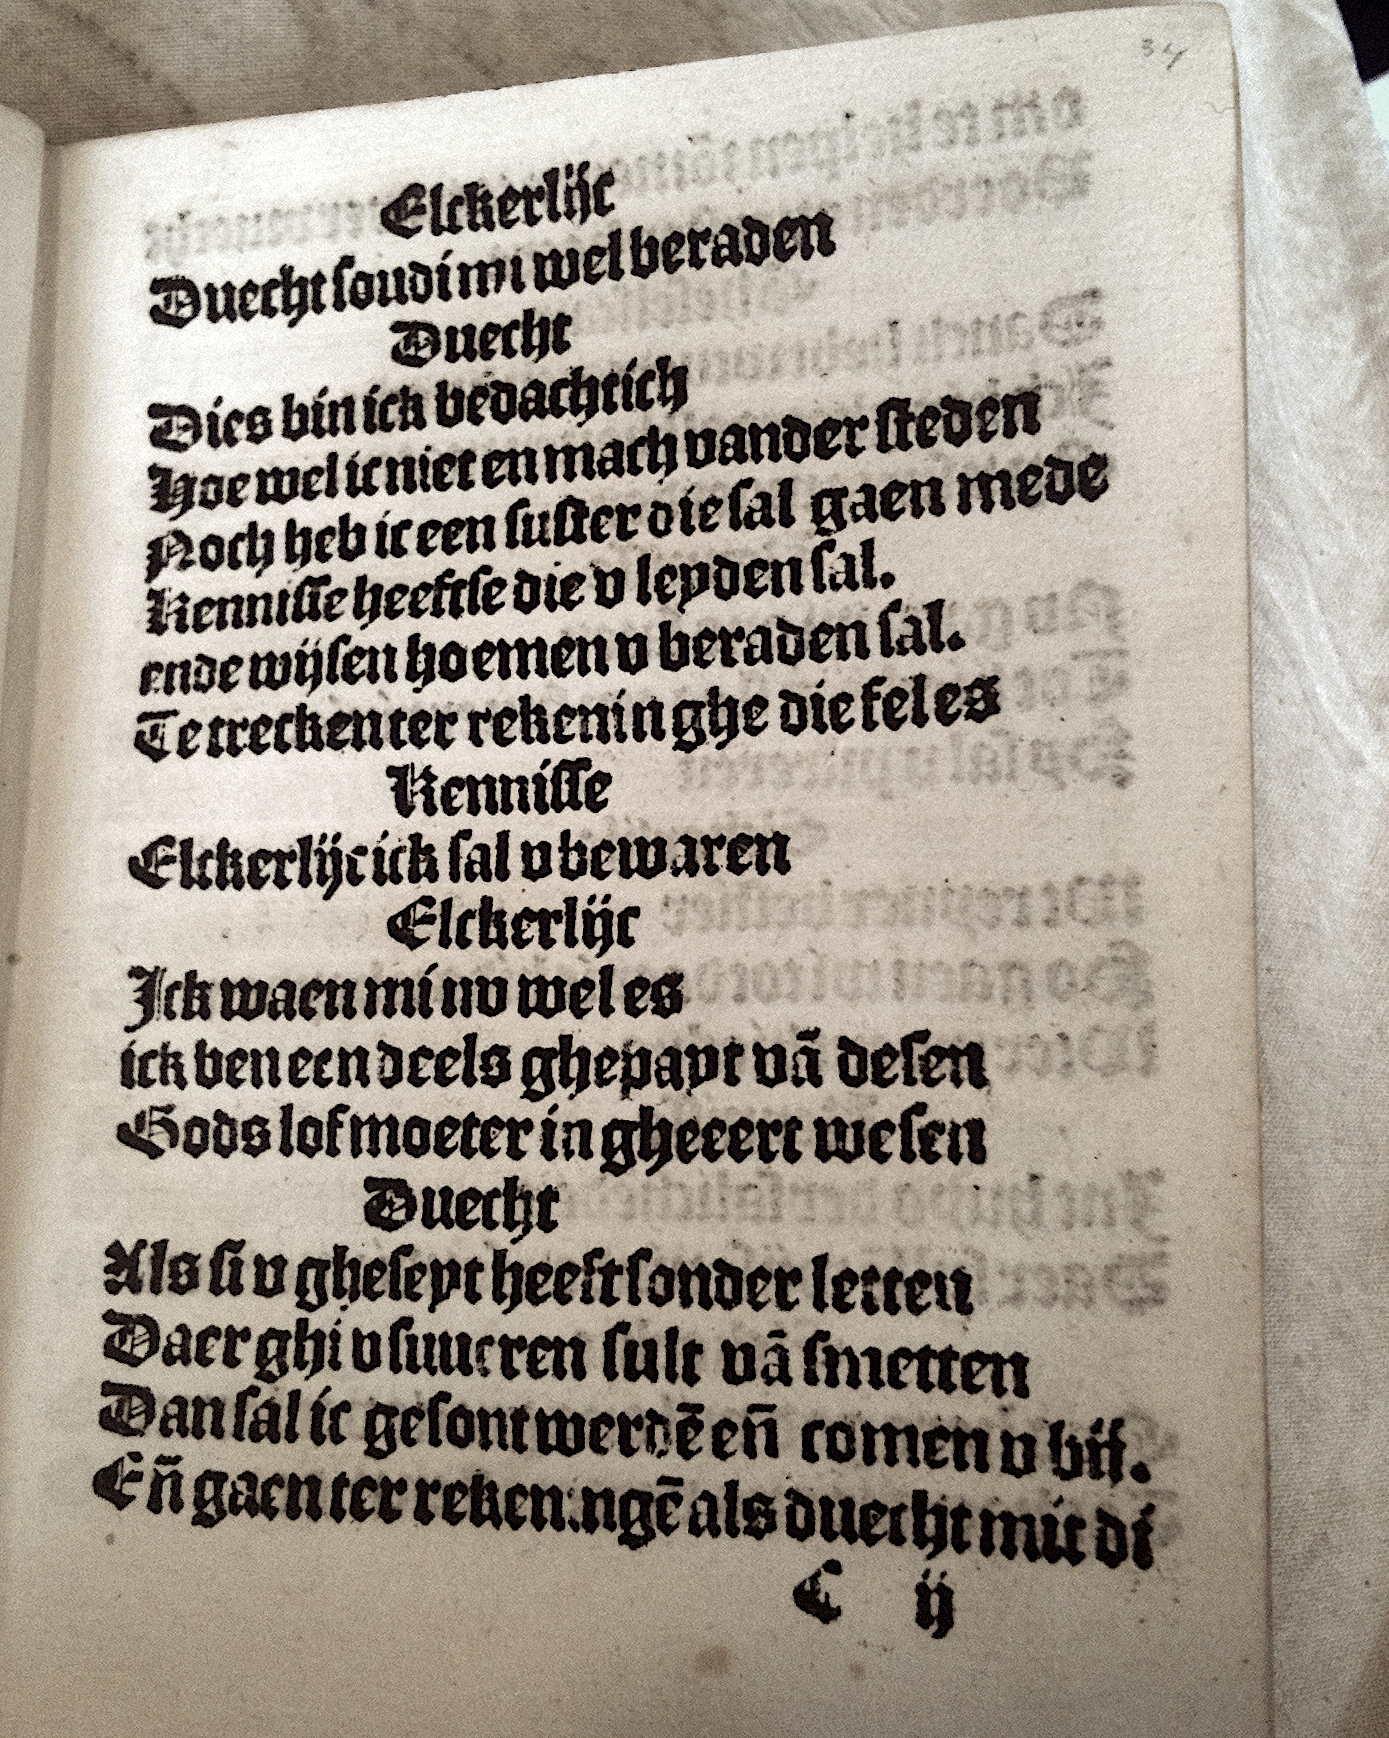 34
Elckerlijc
Duecht soudi mi wel beraden
Duecht
Dies bin ick bedachtich
Hoe wel ic niet en mach vander steden
Noch heb ic een suster die sal gaen mede
Kennisse heeftse die v leyden sal.
ende wijsen hoemen v beraden sal.
Te trecken ter rekeninghe die fel es
Kennisse
Elckerlijc ick sal v bewaren
Elckerlijc
Ick waen mi nv wel es
ick ben een deels ghepayt vā desen
Gods lof moeter in gheeert wesen
Duecht
Als si v gheleyt heeft sonder letten
Daer ghi v suueren sult vā smetten
Dan sal ic gesont werdē eñ comen v bij.
Eñ gaen ter rekeningē als duecht mit di
C ij